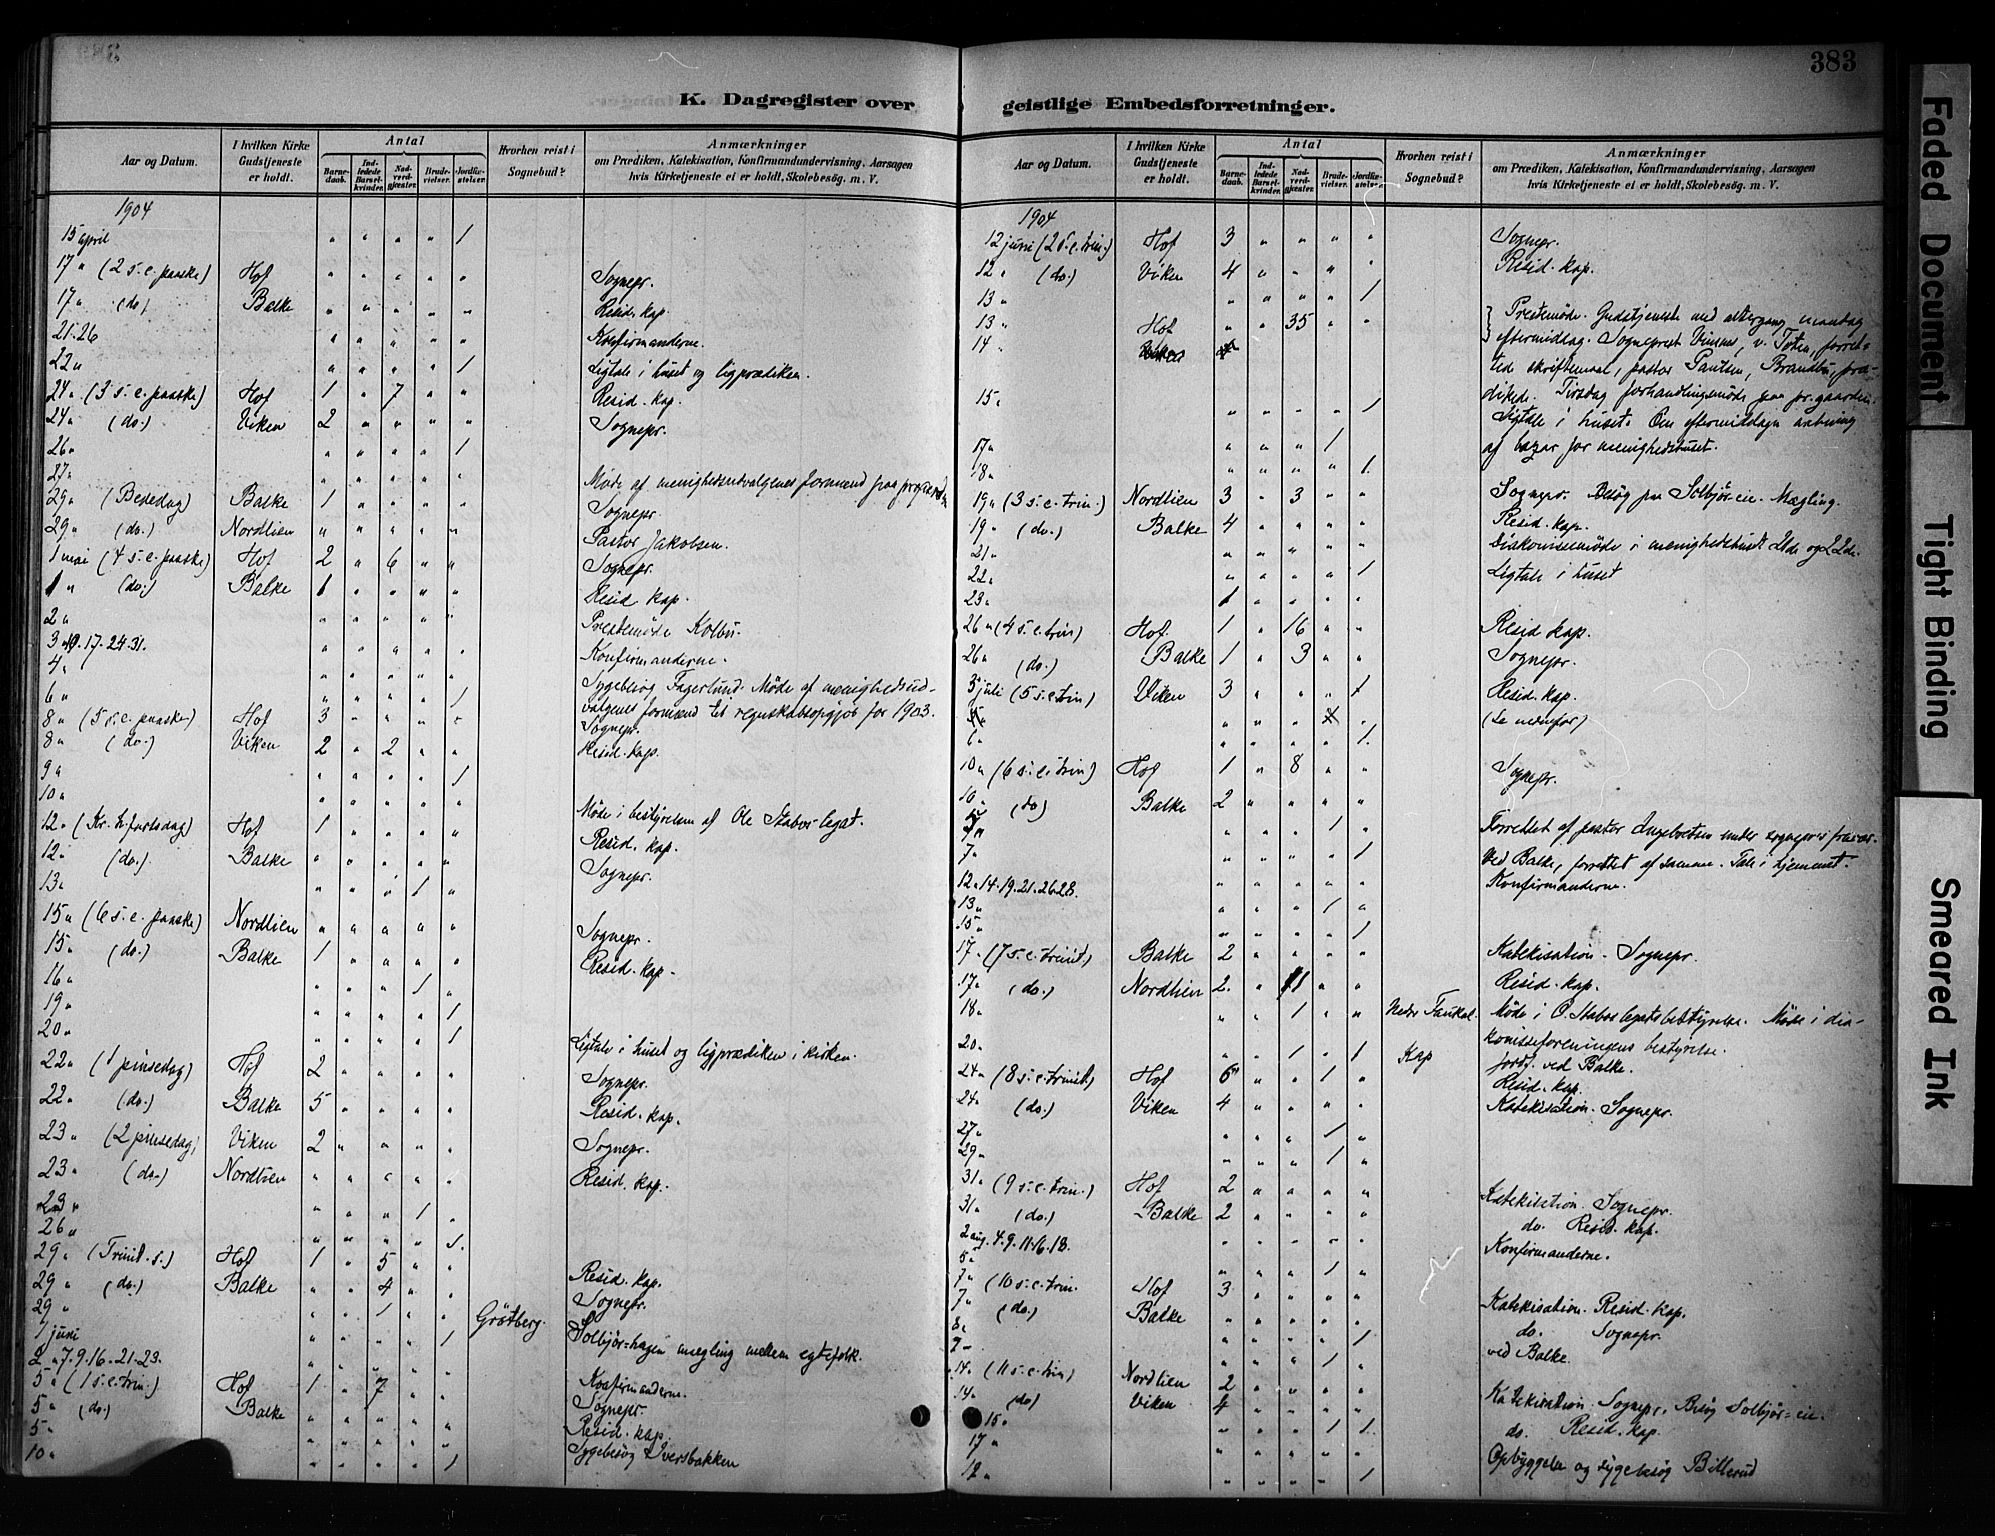 383
K. Dagregister over
Aar og Datum.
I hvilken Kirke Gudstjeneste er holdt.
Antal
Barnedaab.
Indledede Barselkvinder.
Nadverdgjæster.
Brudevielser.
Jordfæstelser.
Hvorhen reist i Sognebud?
Anmærkninger
om Prædiken, Katekisation, Konfirmandundervisning, Aarsagen
hvis Kirketjeneste ei er holdt, Skolebesög. m. V.
1904
15 april " " " " 1
17 " (2 s. e. paaske) Hof " " " " " Sognepr.
17 " (do) Balke " " " " " Resid. kap.
21-26 " " " " " Konfirmanderne.
22 " " " " " 1 Ligtale i huset og ligprædiken.
24 " (3 s. e. paaske) Hof 1 " 7 " " Resid. kap.
24 " (do.) Viken 2 " " " " Sognepr.
26 " " " " " 1
27 " Møde af menighedsudvalgenes formænd paa
29 " (Bededag) Balke 1 " " " " Sognepr.
29 " (do.) Nordlien " " " " " Pastor Jakobsen.
1 mai (4 s. e. paaske) Hof 2 " 6 " " Sognepr.
1 " (do.) Balke 1 " " " " Resid kap.
2 " " " " " " Prestemöde Kolbu.
3 . 10. 17. 24. 31. " " " " " Konfirmanderne.
4 " " " " " " Sygebesög Fagerlund. Møde af menighedsud-
6 " " " " " 1 valgenes formænd regnskabsopgjör for 1903.
8 " (5 s. e. paaske) Hof 3 " " " " Sognepr.
8 " (do.) Viken 2 " 2 " " Resid. kap.
9 " " " " " 1
10 " " " " " " Møde i bestyrelsen af Ole Stabos legat.
12 " (Kr. h. fartsdag) Hof 1 " " " " Resid. kap.
12 " (do.) Balke " " " " " Sognepr.
13 " " " " 1 "
15 " (6 s. e. paaske) Nordlien " " " " " Sognepr.
15 " (do.) Balke 1 " " " " Resid. kap.
16 " " " " 1 "
19 " " " " " 1
20 " " " " " 1 Ligtale i huset og ligprædiken i kirken.
22 " (1 pinsedag) Hof 2 " " " " Sognepr.
22 " (do.) Balke 5 " " " " Resid. kap.
23 " (2 pinsedag) Viken 2 " " " " Sognepr.
23 " (do.) Nordlien " " " " " Resid. kap.
23 " " " " 1 "
26 " " " " " 1.
29 " (Trinit. s.) Hof 1 " 5 " " Resid. kap.
29 " (do.) Balke " " 4 " " Sognepr.
29 " " " 1 " " Grötberg.
1 juni " " " " 1 Solbjör=hagen mægling mellem egtefolk.
2 . 7. 9. 16. 21. 23. " " " " " Konfirmanderne.
5 " (1 s. e. trin.) Hof 1 " 7 " " Sognepr.
5 " (do.) Balke " " " " " Resid. kap.
5 " " " " " " Sygebesög Iversbakken
10 " " " " " 1
geistlige Embedsforretninger.
Aar og Datum.
I hvilken Kirke Gudstjeneste er holdt.
Antal
Barnedaab.
Indledede Barselkvinder.
Nadverdgjæster.
Brudevielser.
Jordfæstelser.
Hvorhen reist i Sognebud?
Anmærkninger
om Prædiken, Katekisation, Konfirmandundervisning, Aarsagen
hvis Kirketjeneste ei er holdt, Skolebesög. m. V.
1904
12 juni (2 s. e. trin.) Hof 3 " " " " Sognepr.
12 " (do.) Viken 4 " " " " Resid. kap.
13 " " " " " 1
13 " Hof " " 35 " " Prestemöde. Gudstjeneste med altergang mandag
14 " eftermiddag. Sogneprest , v. Toten, forret-
tede skriftemaal, pastor Paulsen, Brandbu, præ-
15 " " " " " 1 dikede. Tirsdag forhandlingsmöde paa pr.gaarden.
Ligtale i huset. Om eftermiddagen aabning
17 " " " " 1 " af bazar for menighedshuset.
18 " " " " " 1.
19 " (3 s. e. trin.) Nordlien 3 " 3 " " Sognepr. Besög paa Solbjör-eie. Mægling.
19 " (do.) Balke 4 " " " " Resid. kap.
21 " " " " " " Diakonissemöde i menighedshuset 21de og 22de.
22 " " " " " 1 Ligtale i huset
23 " 1 " " " "
26 " (4 s. e. trin) Hof. 1 " 16 " " Resid kap.
26 " (do.) Balke 1 " 3 " " Sognepr.
3 juli (5 s. e. trin) Viken 3 " " " 1 Resid. kap.
" " " " (Se nedenfor)
6 " " " " " 1.
10 " (6 s. e. trin) Hof 1 " 8 " " Sognepr.
10 " (do) Balke 2 " " " "
" " " 1 " Forrettet af pastor Ingebretsen under sognepr.s fravær.
7 " " " " " 1 Ved Balke, forrettet af samme. Tale i hjemmet.
12 . 14. 19. 21. 26. 28. " " " " " Konfirmanderne.
13 " " " " 1 "
15 " " " " " 1
17 " (7 s. e. trinit.) Balke 2 " " " " Katekisation. Sognepr.
17 " (do.) Nordlien 2. " 11 " " Resid. kap.
18 " " " 1 " " Nedre Faukal. Møde i O. Stabos legats bestyrelse. Møde i dia-
konisseforeningens bestyrelse.
20 " " " 1 " 1 Kap jordf. ved Balke.
24 " (8 s. e. trinit.) Hof 6 " " 1 " Resid. kap.
24 " (do.) Viken 4 " " " " Katekisation. Sognepr.
27 " " " " 1 "
29 " " " " 1 "
31 " (9 s. e. trin.) Hof 2 " " " " Katekisation. Sognepr.
31 " (do.) Balke 2 " " " " do. Resid. kap.
2 aug. 4. 9. 11. 16. 18. " " " " " Konfirmanderne.
5 " " " " 1 "
7 " (10 s. e. trin. Hof 3 " " " " Katekisation. Resid. kap.
7 " (do.) Balke " " " " " do. Sognepr.
8 " " " " " 1 ved Balke.
7 " " " " 1 "
14 " (11 s. e. trin) Nordlien 2 " " " " Katekisation. Sognepr. Besög Solbjör=eie.
14 " (do) Viken 4 " " " " do. Resid. kap.
15 " " " " 1 1
17 " " " " " " Opbyggelse og sygebesög Billerud
12 " " " " " 1
Faded Document
Tight Binding
Smeared Ink